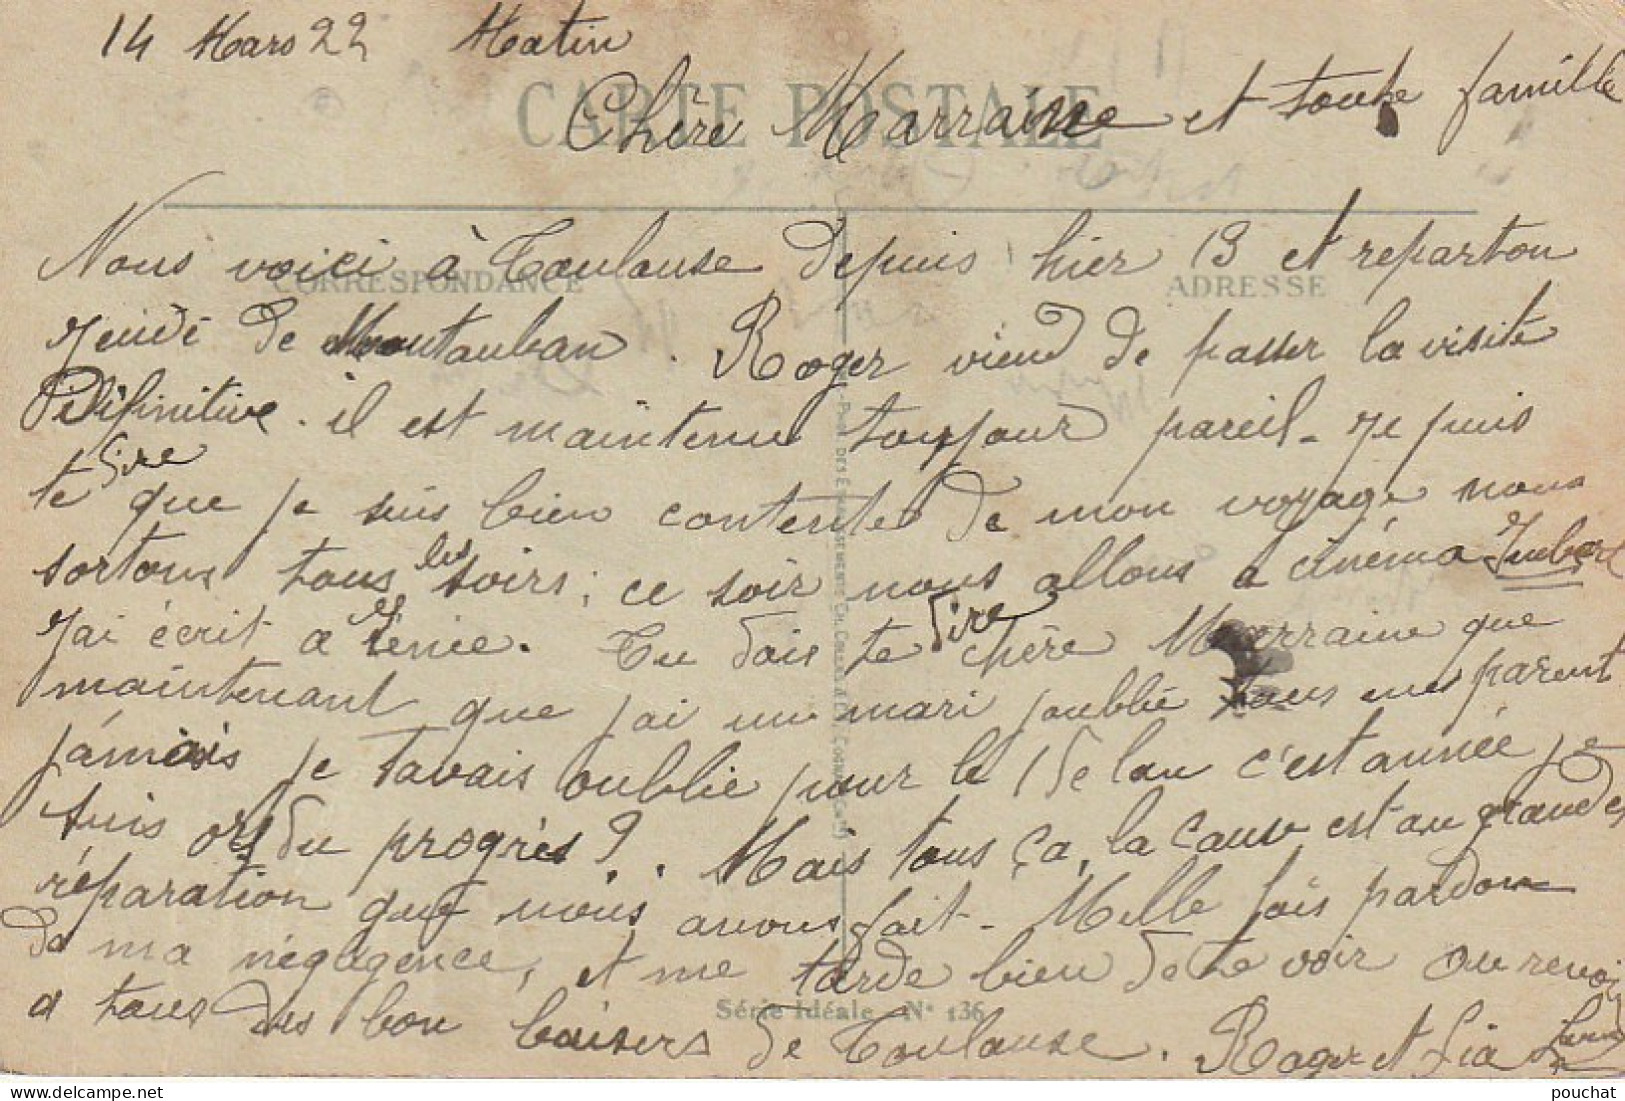 14 Mars 22 Matin
CARTE POSTALE
Chère Marraine et toute famille
CORRESPONDANCE
ADRESSE
Nous voici à Toulouse depuis hier 13 et reparton
Jeudi de Montauban. Roger viend de passer la visite
Définitive. il est maintenu toujour pareil - Je puis
te dire que je suis bien contente de mon voyage nous
sortons tous les soirs; ce soir nous allons a cinéma
J'ai écrit a Irénie. Tu dois te dire chère Marraine que
maintenant que j'ai un mari j'oublie tous mes parent
jámais je t'avais oublié pour le 1 de l'an c'est année je
suis ors du progrès ?.. Mais tous ça, la cause est au grandes
réparation que nous avons fait - Mille fois pardon
de ma négligence, et me tarde bien de te voir Au revoir
a tous des bon baisers de Toulouse. Roger et Lia
Série Idéale N° 136
pouchat